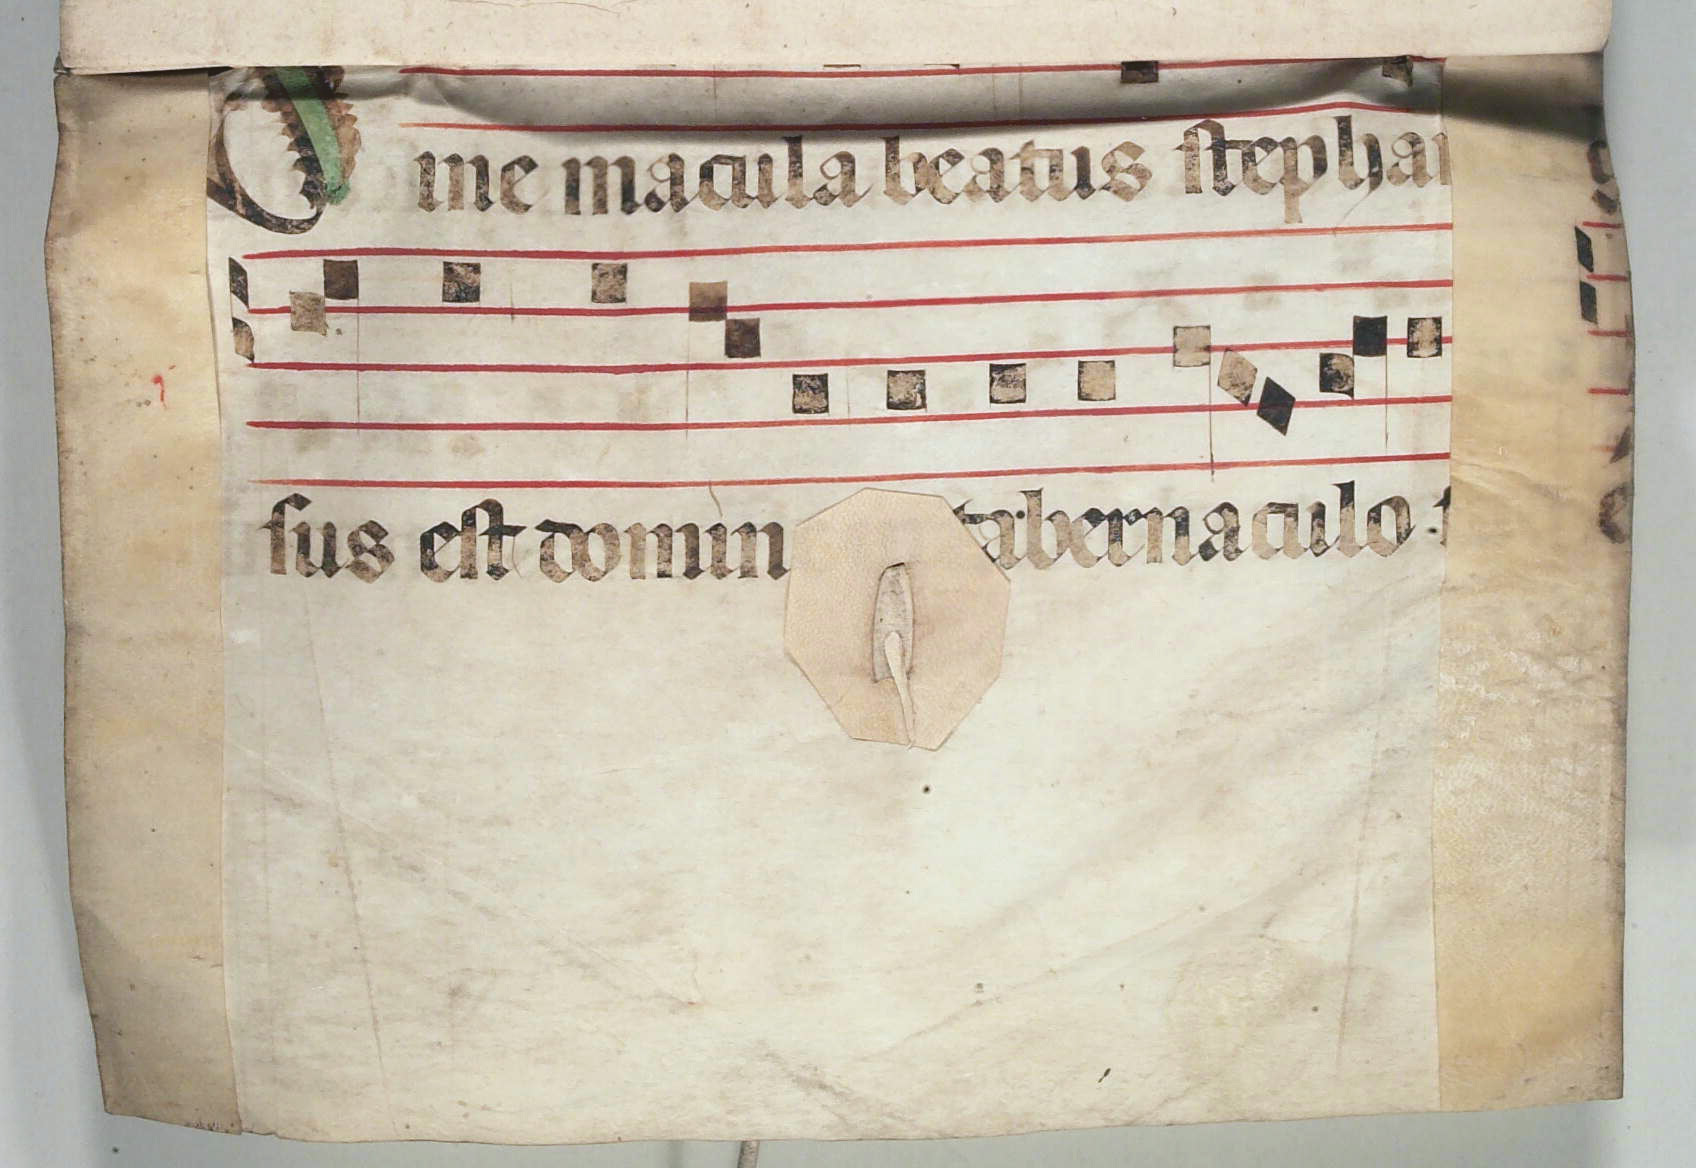 me macula beatus stephan
sus est domin tabernaculo